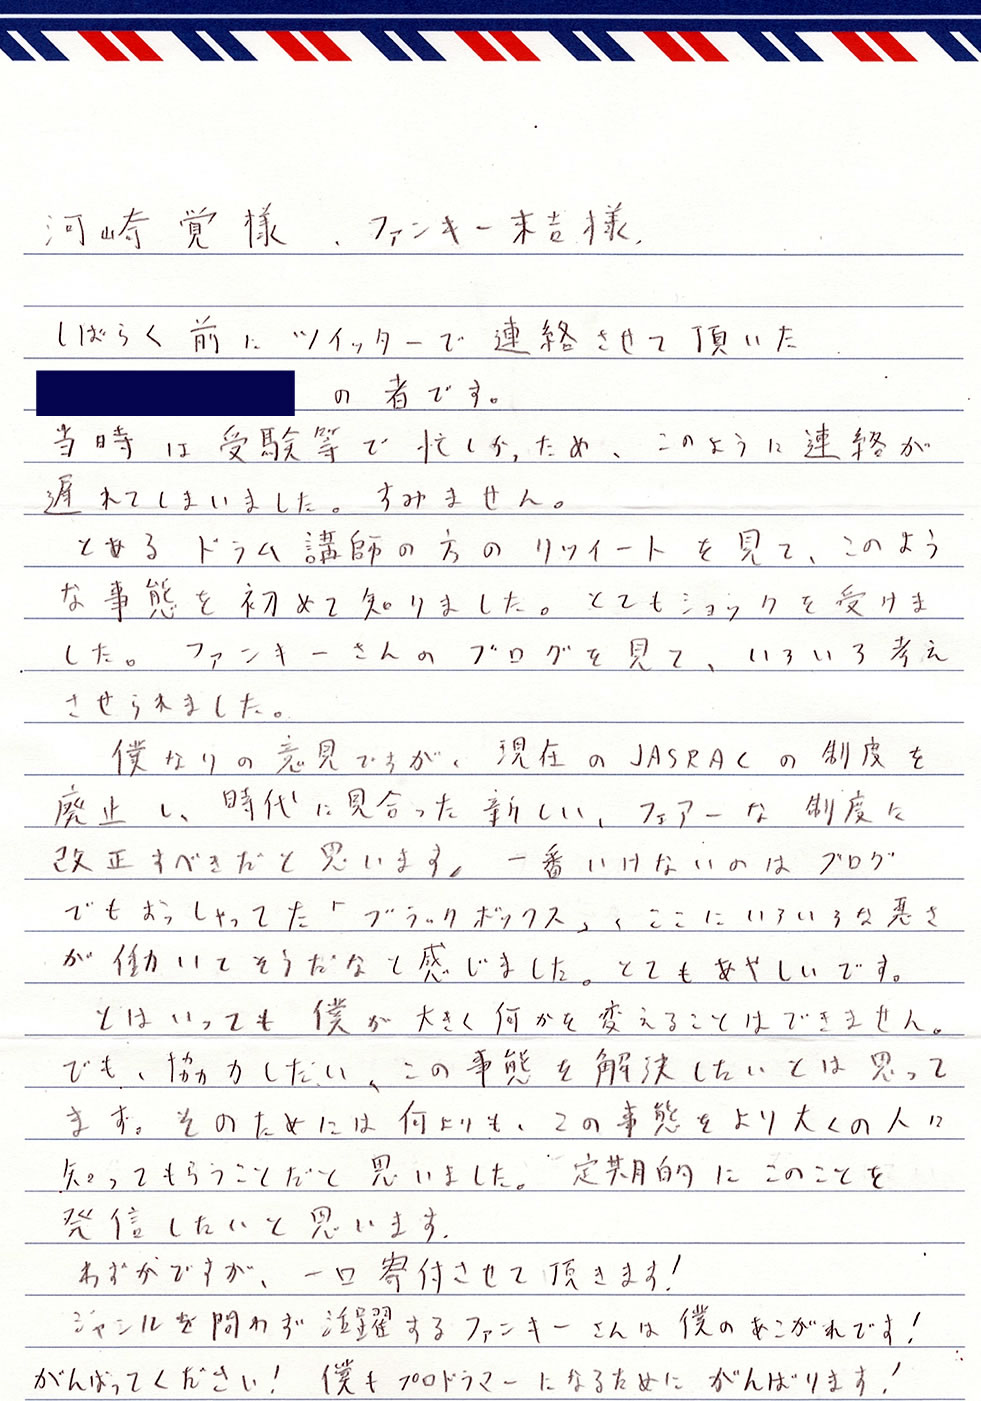 河崎覚様、ファンキー末吉様、
しばらく前にツイッターで連絡させて頂いた
の者です。
当時は受験等で忙しかったため、このように連絡が
遅れてしまいました。すみません。
とあるドラム講師の方のリツイートを見て、このよう
な事態を初めて知りました。とてもショックを受けま
した。ファンキーさんのブログを見て、いろいろ考え
させられました。
僕なりの意見ですが、現在のJASRACの制度を
廃止し、時代に見合った新しい、フェアーな制度に
改正すべきだと思います。一番いけないのはブログ
でもおっしゃってた「ブラックボックス」、ここにいろいろな悪さ
が働いてそうだなと感じました。とてもあやしいです。
とはいっても僕が大きく何かを変えることはできません。
でも、協力したい、この事態を解決したいとは思って
ます。そのためには何よりも、この事態をより多くの人に
知ってもらうことだと思いました。定期的にこのことを
発信したいと思います。
わずかですが、一口寄付させて頂きます!
ジャンルを問わず活躍するファンキーさんは僕のあこがれです!
がんばってください! 僕もプロドラマーになるためにがんばります!